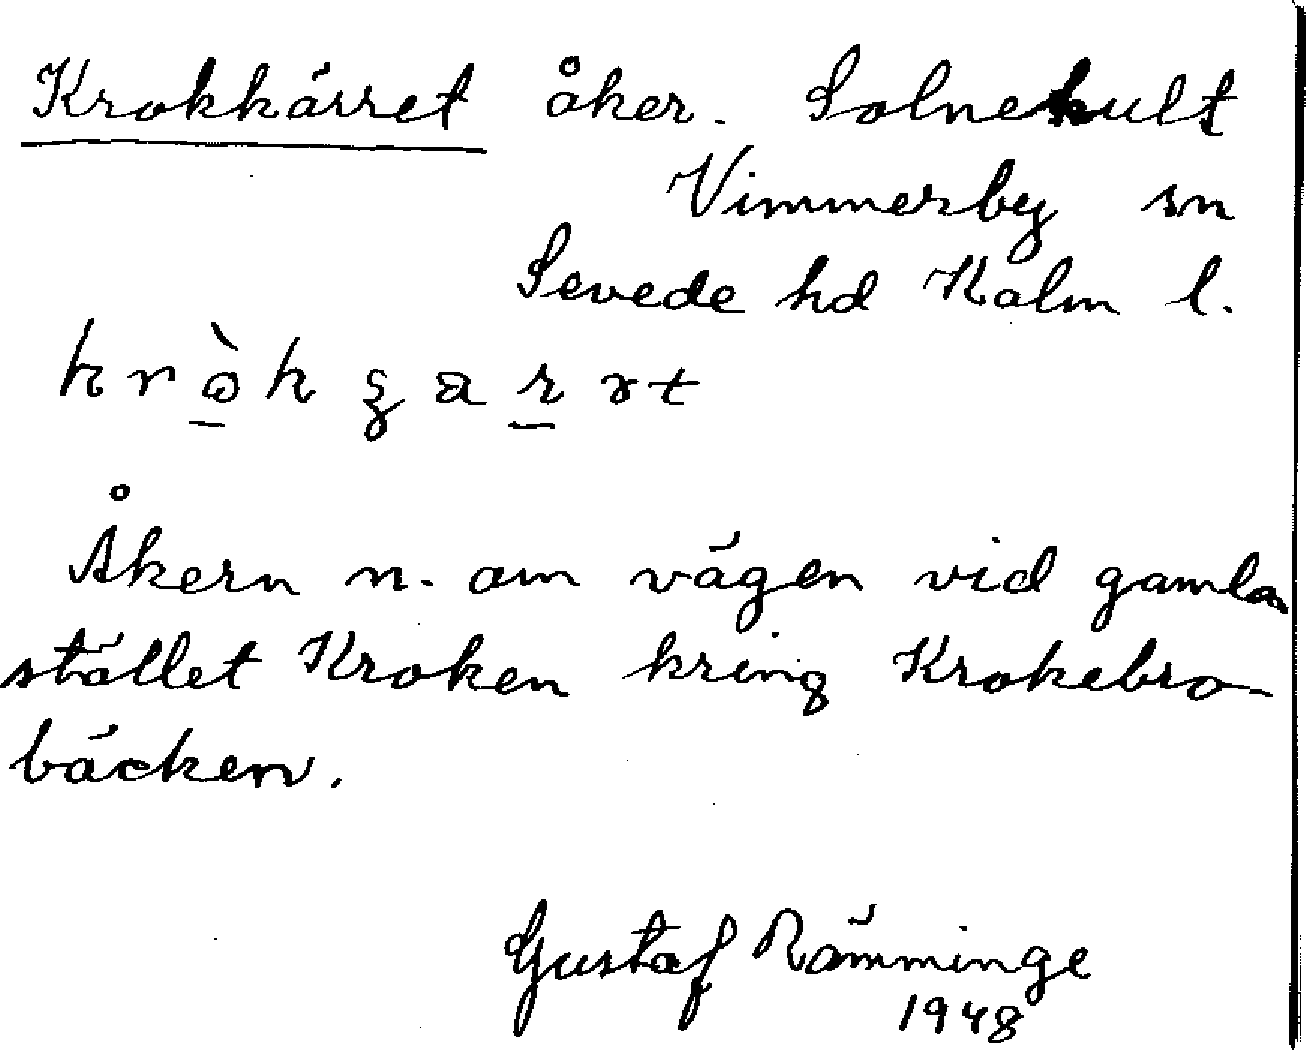 Krokkärret åker. Solnehult
Vimmerby sn
Sevede hd Kalm l.
Åkern n. om vägen vid gamla
stället Kroken kring Krokebro-
bäcken.
Gustaf Rämminge
1948